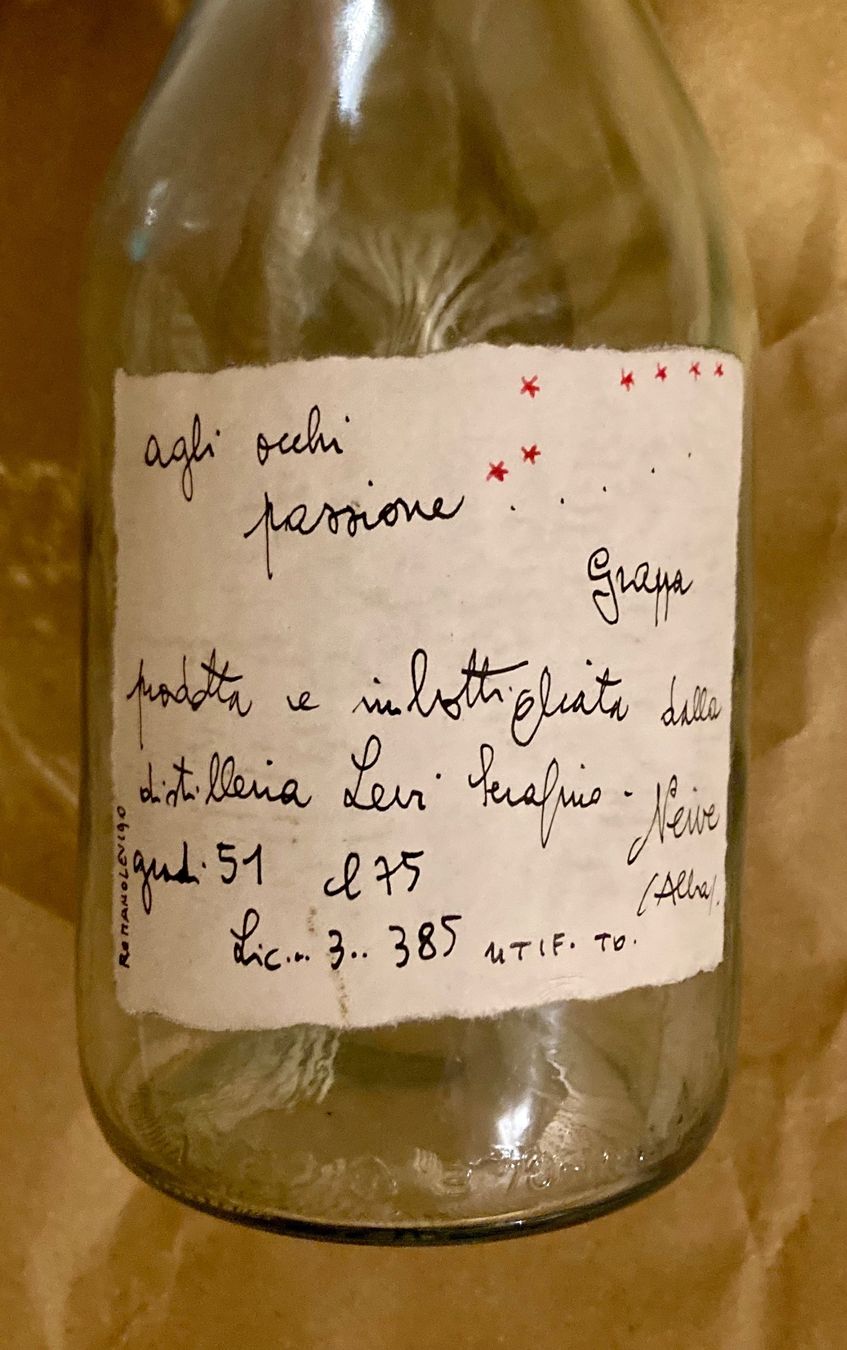 agli occhi
passione . . . . .
Grappa
prodotta e imbottigliata dalla
distilleria Levi Serafino - Neive
gradi 51 cl 75 (Alba).
Lic... 3.. 385 UTIF. TO.
ROMANOLEVI90